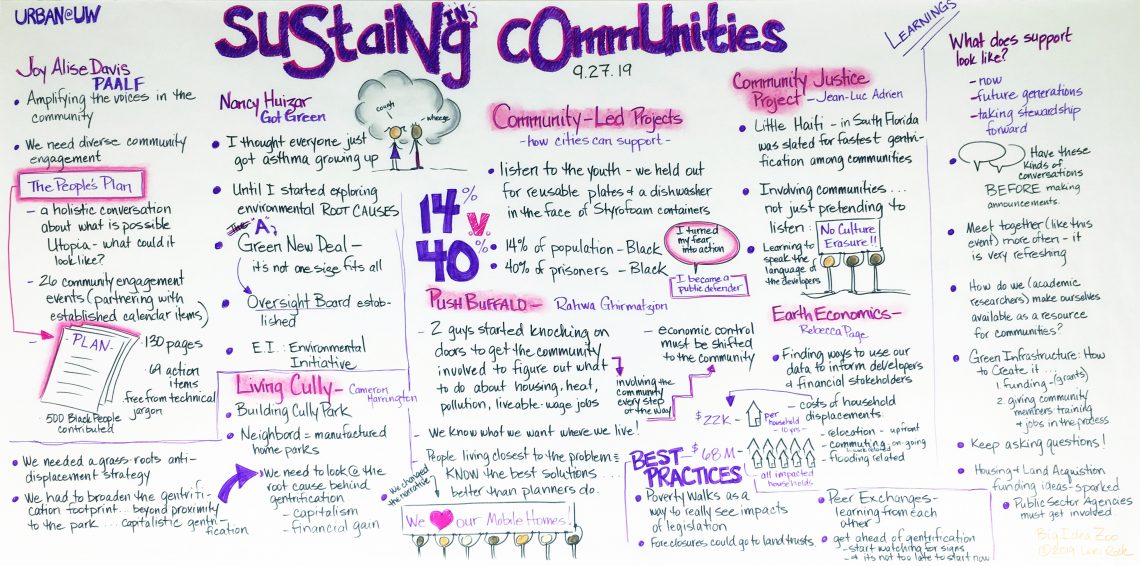 URBAN@UW
SUSTAINING COMMUNITIES
9.27.19
LEARNINGS
Joy Alise Davis
PAALF
• Amplifying the voices in the
community
• We need diverse community
engagement
The People's Plan
- a holistic conversation
about what is possible
Utopia - what could it
look like?
- 26 community engagement
events (partnering with
established calendar items)
- PLAN -
· 130 pages
· 69 action
items
· free from technical
jargon
· 500 Black People
contributed
• We needed a grass-roots anti-
displacement strategy
• We had to broaden the gentrifi-
cation footprint... beyond proximity
to the park ... capitalistic gentri-
fication
Nancy Huizar
Got Green
cough
- wheeze
• I thought everyone just
got asthma growing up
• Until I started exploring
environmental ROOT CAUSES
"A"
• Green New Deal -
it's not one size fits all
• Oversight Board estab-
lished
• E.I.: Environmental
Initiative
Living Cully - Cameron
Harrington
• Building Cully Park
• Neighbord = manufactured
home parks
We need to look @ the
root cause behind
gentrification
- capitalism
- financial gain
Community-Led Projects
- how cities can support -
• listen to the youth - we held out
for reusable plates & a dishwasher
in the face of Styrofoam containers
14% v. 40%
• 14% of population - Black
• 40% of prisoners - Black
I turned
my fear
into action
I became a
public defender
PUSH BUFFALO - Rahwa Ghirmatzion
- 2 guys started knocking on
doors to get the community
involved to figure out what
to do about housing, heat,
pollution, liveable-wage jobs
- economic control
must be shifted
to the community
involving the
community
every step
of the way
- We know what we want where we live!
- People living closest to the problems
KNOW the best solutions...
better than planners do.
• We changed
the narrative
We ♥ our Mobile Homes!
Community Justice
Project - Jean-Luc Adrien
• Little Haiti - in South Florida
was slated for fastest gentri-
fication among communities
• Involving communities...
not just pretending to
listen:
• Learning to
speak the
language of
the developers
No Culture
Erasure!!
Earth Economics -
Rebecca Page
• Finding ways to use our
data to inform developers
& financial stakeholders
- costs of household
displacements:
- relocation - upfront
- commuting - on-going
- flooding related
$22K -
per
household
- 10 yrs -
$68M -
all impacted
households
BEST
PRACTICES
• Poverty Walks as a
way to really see impacts
of legislation
• Foreclosures could go to land trusts
• Peer Exchanges -
learning from each
other
• get ahead of gentrification
- start watching for signs
- & it's not too late to start now
What does support
look like?
- now
- future generations
- taking stewardship
forward
• Have these
kinds of
conversations
BEFORE making
announcements.
• Meet together (like this
event) more often - it
is very refreshing
• How do we (academic
researchers) make ourselves
available as a resource
for communities?
• Green Infrastructure: How
to Create it...
1. funding - (grants)
2. giving community
members training
& jobs in the process
• Keep asking questions!
• Housing & Land Acquistion
funding ideas - sparked
• Public Sector Agencies
must get involved
Big Idea Zoo
©2019